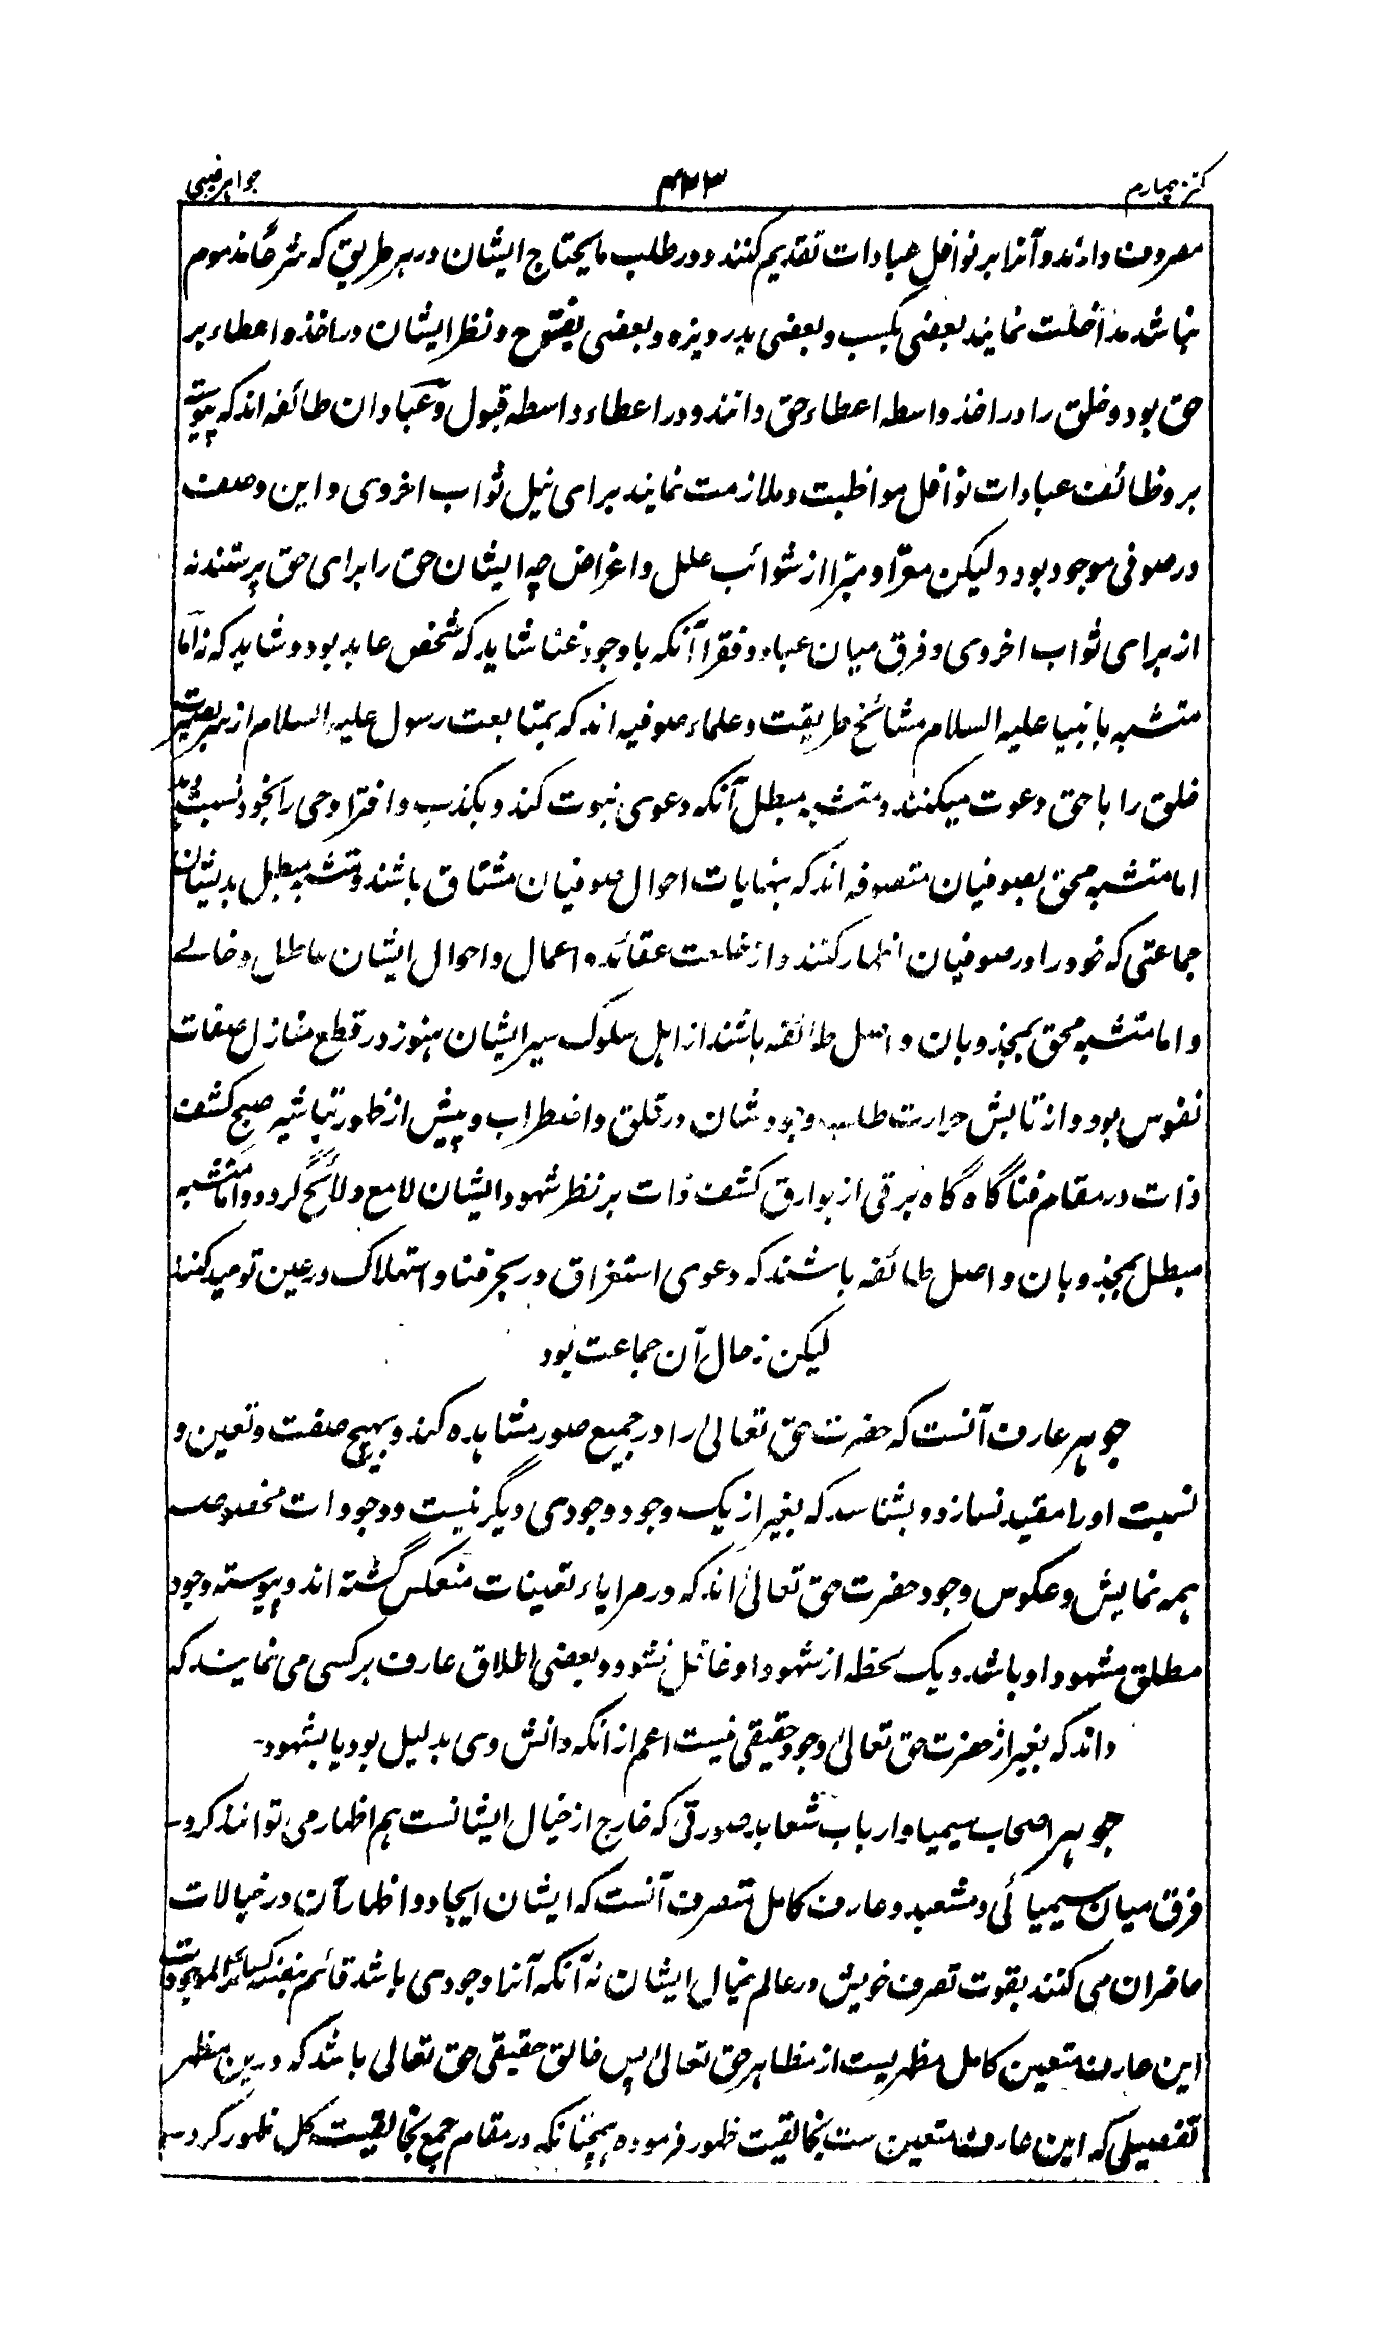 کنز چهارم ۴۲۳ جواهر غیبی
مصروف دارند و آنرا بر نوافل عبادات تقدیم کنند و در طلب ما یحتاج ایشان در هر طریق که شرعاً مذموم
نباشد مداخلت نمایند بعضی بکسب و بعضی بدریوزه و بعضی بفتوح و نظر ایشان در اخذ و اعطاء بر
حق بود و خلق را در اخذ واسطه اعطاء حق دانند و در اعطاء واسطه قبول و عبادان طائفه اند که پیوسته
بر وظائف عبادات نوافل مواظبت و ملازمت نمایند برای نیل ثواب اخروی و این وصف
در صوفی موجود بود و لیکن معرّا و مبرّا از شوائب علل و اغراض چه ایشان حق را برای حق پرستند نه
از برای ثواب اخروی و فرق میان عباد و فقرا آنکه باوجود غنا شاید که شخص عابد بود و شاید که نه اما
متشبه بانبیا علیه السلام مشائخ طریقت و علماء صوفیه اند که بمتابعت رسول علیه السلام از سر بصیرت
خلق را با حق دعوت میکنند و متشبه مبطل آنکه دعوی نبوت کند و بکذب و افترا وحی را بخود نسبت
اما متشبه محق بصوفیان متصوفه اند که بنهایات احوال صوفیان مشتاق باشند و متشبه مبطل بدیشان
جماعتی که خود را در صوفیان اظهار کنند و از عقائد و اعمال و احوال ایشان عاطل و خالے
و اما متشبه محق بمجذوبان واصل طائفه باشند از اهل سلوک سیر ایشان هنوز در قطع منازل صفات
نفوس بود و از تابش حرارت طلب وجود شان در قلق و اضطراب و پیش از ظهور تباشیر صبح کشف
ذات در مقام فنا گاه گاه برقی از بوارق کشف ذات بر نظر شهود ایشان لامع و لائح گردد و اما متشبه
مبطل بمجذوبان واصل طائفه باشند که دعوی استغراق در بحر فنا و استهلاک در عین توحید کنند
لیکن نه حال آن جماعت بود
جوهر عارف آنست که حضرت حق تعالیٰ را در جمیع صور مشاهده کند و بهیچ صفت و تعین و
نسبت او را مقید نسازد و بشناسد که بغیر از یک وجود وجودی دیگر نیست و وجودات مخصوصه
همه نمایش و عکوس وجود حضرت حق تعالیٰ اند که در مرایاء تعینات منعکس گشته اند و پیوسته وجود
مطلق مشهود او باشد و یک لحظه از شهود او غافل نشود و بعضی اطلاق عارف بر کسی می نمایند که
داند که بغیر از حضرت حق تعالیٰ وجود حقیقی نیست اعم از آنکه دانش وی بدلیل بود یا بشهود۔
جوهر اصحاب سیمیا و ارباب شعابد صورتی که خارج از خیال ایشانست هم اظهار می توانند کرد۔
فرق میان سیمیائی و مشعبد و عارف کامل متصرف آنست که ایشان ایجاد و اظهار آن در خیالات
حاضران می کنند بقوت تصرف خویش در عالم خیال ایشان نه آنکه آنرا وجودی باشد قائم بنفسه کسائر الموجودات
این عارف متعین کامل مظهریست از مظاهر حق تعالیٰ پس خالق حقیقی حق تعالی باشد که درین مظهر
تفصیلی که این عارف متعین ست بخالقیت ظهور فرموده همچنانکه در مقام جمع بخالقیت کل ظهور کرده